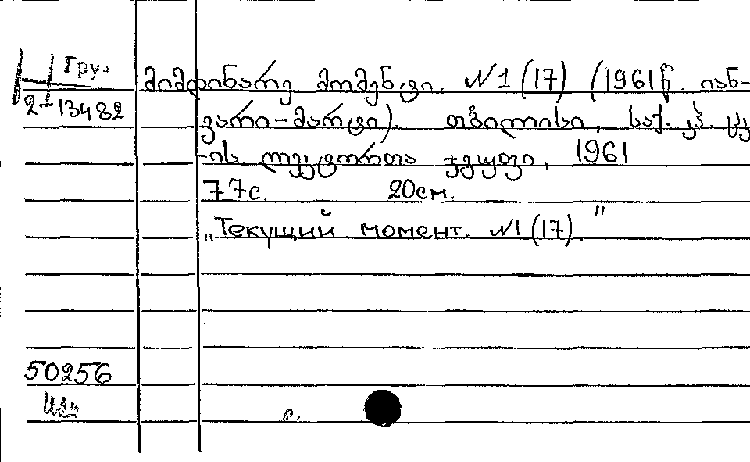 Груз
2-13482
მიმდინარე მომენტი. №1 (17) (1961წ. იან-
ვარი-მარტი). თბილისი, საქ. კპ ცკ
-ის ლექტორთა ჯგუფი, 1961
77с. 20см.
„Текущий момент. №1 (17)."
50256
с.